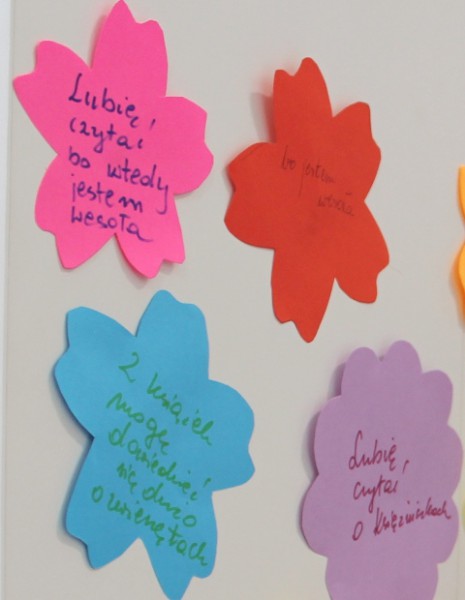 Lubię
czytać
bo wtedy
jestem
wesoła
bo jestem
Z książek
mogę
dowiedzieć
się dużo
o zwierzętach
Lubię
czytać
o księżniczkach